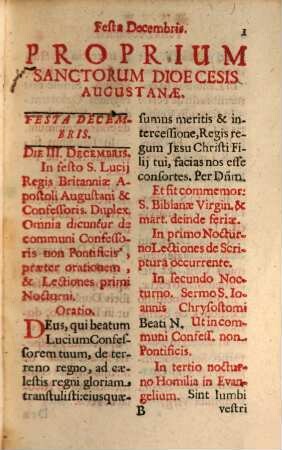 Festa Decembris.
1
PROPRIUM
SANCTORUM DIOECESIS
AUGUSTANÆ.
FESTA DECEM-
BRIS.
DIE III. DECEMBRIS.
In festo S. Lucij
Regis Britanniæ A-
postoli Augustani &
Confessoris. Duplex.
Omnia dicuntur de
communi Confesso-
ris non Pontificis,
præter orationem,
& Lectiones primi
Nocturni.
Oratio.
DEus, qui beatum
Lucium Confes-
sorem tuum, de ter-
reno regno, ad cæ-
lestis regni gloriam
transtulisti: eiusquæ-
sumus meritis & in-
tercessione, Regis re-
gum JESU Christi Fi-
lij tui, facias nos esse
consortes. Per Dñm.
Et fit commemor:
S. Bibianæ Virgin. &
mart. deinde feriæ.
In primo Noctur-
no Lectiones de Scri-
ptura occurrente.
In secundo Noc-
turno. Sermo S. Io-
annis Chrysostomi
Beati N. Ut in com-
muni Confess. non
Pontificis.
In tertio noctur-
no Homilia in Evan-
gelium. Sint lumbi
B vestri